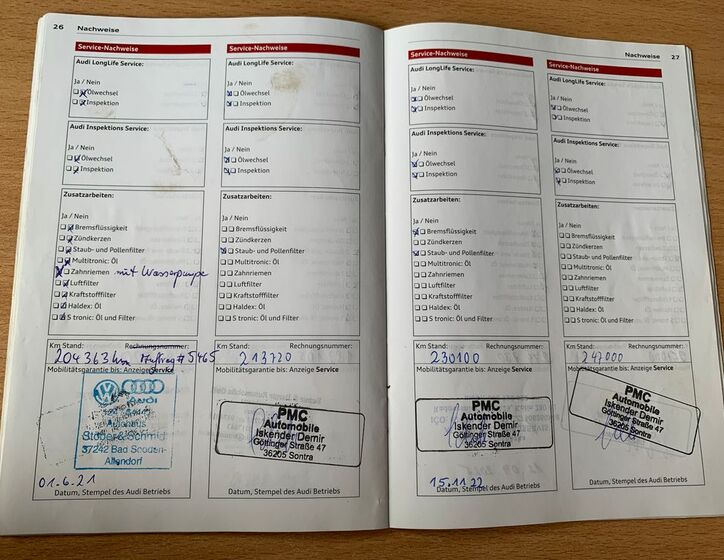 26 Nachweise
Service-Nachweise
Audi LongLife Service:
Ja / Nein
Ölwechsel
Inspektion
Audi Inspektions Service:
Ja / Nein
Ölwechsel
Inspektion
Zusatzarbeiten:
Ja / Nein
Bremsflüssigkeit
Zündkerzen
Staub- und Pollenfilter
Multitronic: Öl
Zahnriemen mit Wasserpumpe
Luftfilter
Kraftstofffilter
Haldex: Öl
S tronic: Öl und Filter
Km Stand: Rechnungsnummer:
204363 km Auftrag # 5465
Mobilitätsgarantie bis: Anzeige Service
Audi
Autohaus
Stöber & Schmid
37242 Bad Sooden-
Allendorf
01.6.21
Service-Nachweise
Audi LongLife Service:
Ja / Nein
Ölwechsel
Inspektion
Audi Inspektions Service:
Ja / Nein
Ölwechsel
Inspektion
Zusatzarbeiten:
Ja / Nein
Bremsflüssigkeit
Zündkerzen
Staub- und Pollenfilter
Multitronic: Öl
Zahnriemen
Luftfilter
Kraftstofffilter
Haldex: Öl
S tronic: Öl und Filter
Km Stand: Rechnungsnummer:
213720
Mobilitätsgarantie bis: Anzeige Service
PMC
Automobile
Iskender Demir
Göttinger Straße 47
36205 Sontra
Datum, Stempel des Audi Betriebs
Nachweise 27
Service-Nachweise
Audi LongLife Service:
Ja / Nein
Ölwechsel
Inspektion
Audi Inspektions Service:
Ja / Nein
Ölwechsel
Inspektion
Zusatzarbeiten:
Ja / Nein
Bremsflüssigkeit
Zündkerzen
Staub- und Pollenfilter
Multitronic: Öl
Zahnriemen
Luftfilter
Kraftstofffilter
Haldex: Öl
S tronic: Öl und Filter
Km Stand: Rechnungsnummer:
230100
Mobilitätsgarantie bis: Anzeige Service
PMC
Automobile
Iskender Demir
Göttinger Straße 47
36205 Sontra
15.11.22
Datum, Stempel des Audi Betriebs
Service-Nachweise
Audi LongLife Service:
Ja / Nein
Ölwechsel
Inspektion
Audi Inspektions Service:
Ja / Nein
Ölwechsel
Inspektion
Zusatzarbeiten:
Ja / Nein
Bremsflüssigkeit
Zündkerzen
Staub- und Pollenfilter
Multitronic: Öl
Zahnriemen
Luftfilter
Kraftstofffilter
Haldex: Öl
S tronic: Öl und Filter
Km Stand: Rechnungsnummer:
247000
Mobilitätsgarantie bis: Anzeige Service
PMC
Automobile
Iskender Demir
Göttinger Straße 47
36205 Sontra
Datum, Stempel des Audi Betriebs